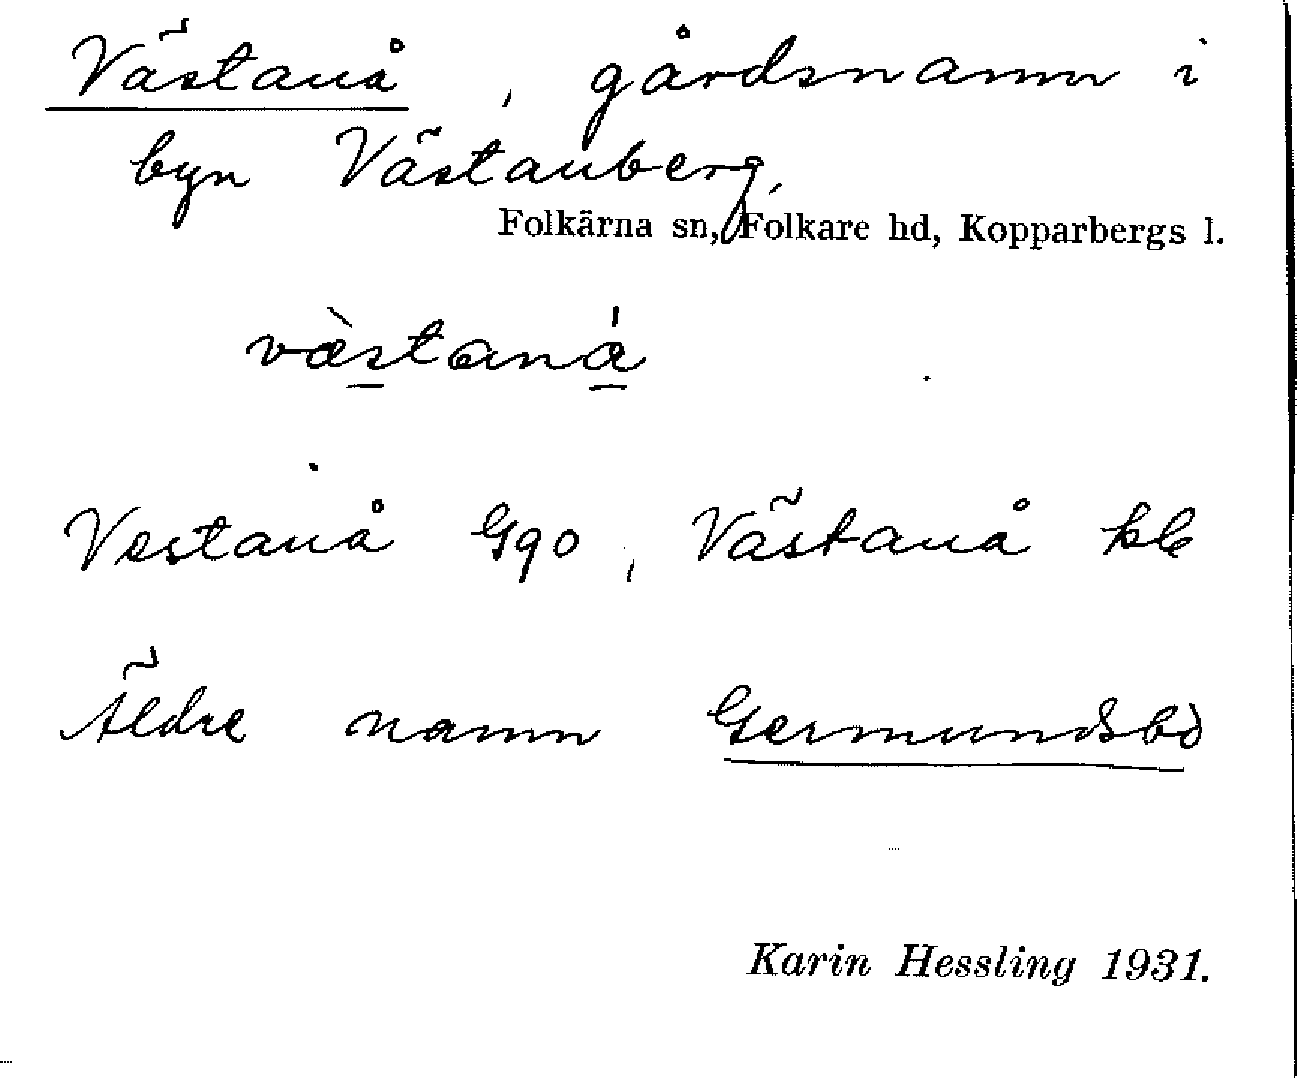 Västanå, gårdsnamn i
byn Västanberg,
Folkärna sn, Folkare hd, Kopparbergs l.
væ̀staná
Vestanå Ggo, Västanå kb
Äldre namn Germundsbo
Karin Hessling 1931.